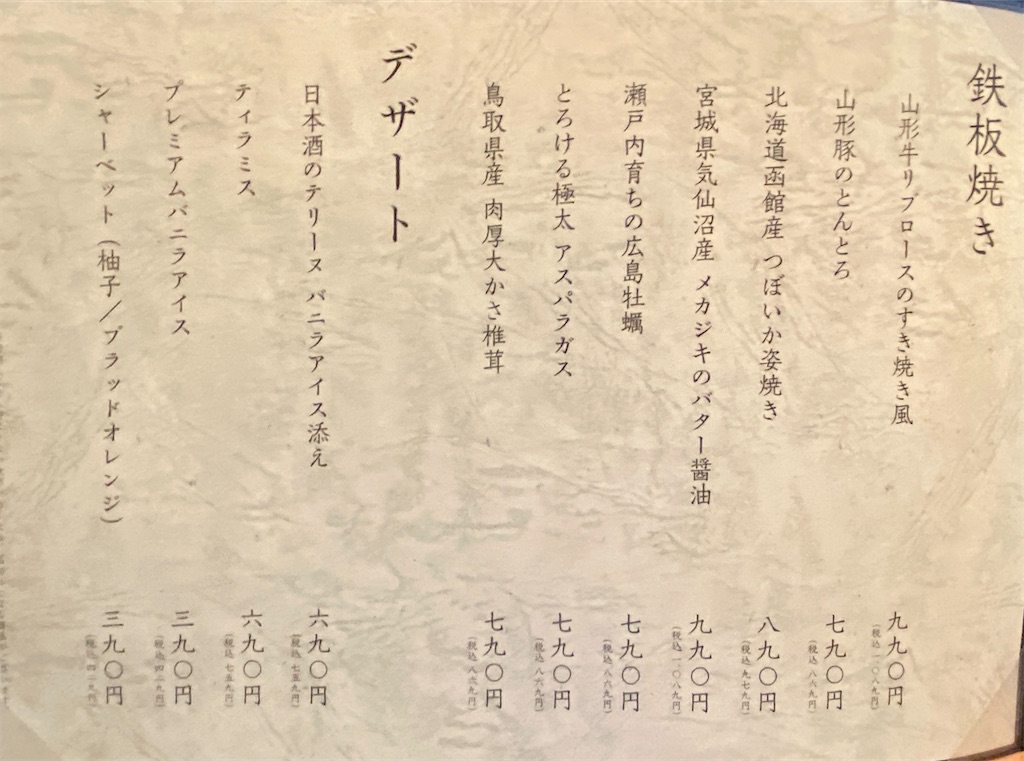 鉄板焼き
山形牛リブロースのすき焼き風
九九〇円
(税込 一、〇八九円)
山形豚のとんとろ
七九〇円
(税込 八六九円)
北海道函館産 つぼいか姿焼き
八九〇円
(税込 九七九円)
宮城県気仙沼産 メカジキのバター醤油
九九〇円
(税込 一、〇八九円)
瀬戸内育ちの広島牡蠣
七九〇円
(税込 八六九円)
とろける極太 アスパラガス
七九〇円
(税込 八六九円)
鳥取県産 肉厚大かさ椎茸
七九〇円
(税込 八六九円)
デザート
日本酒のテリーヌ バニラアイス添え
六九〇円
(税込 七五九円)
ティラミス
六九〇円
(税込 七五九円)
プレミアムバニラアイス
三九〇円
(税込 四二九円)
シャーベット(柚子/ブラッドオレンジ)
三九〇円
(税込 四二九円)